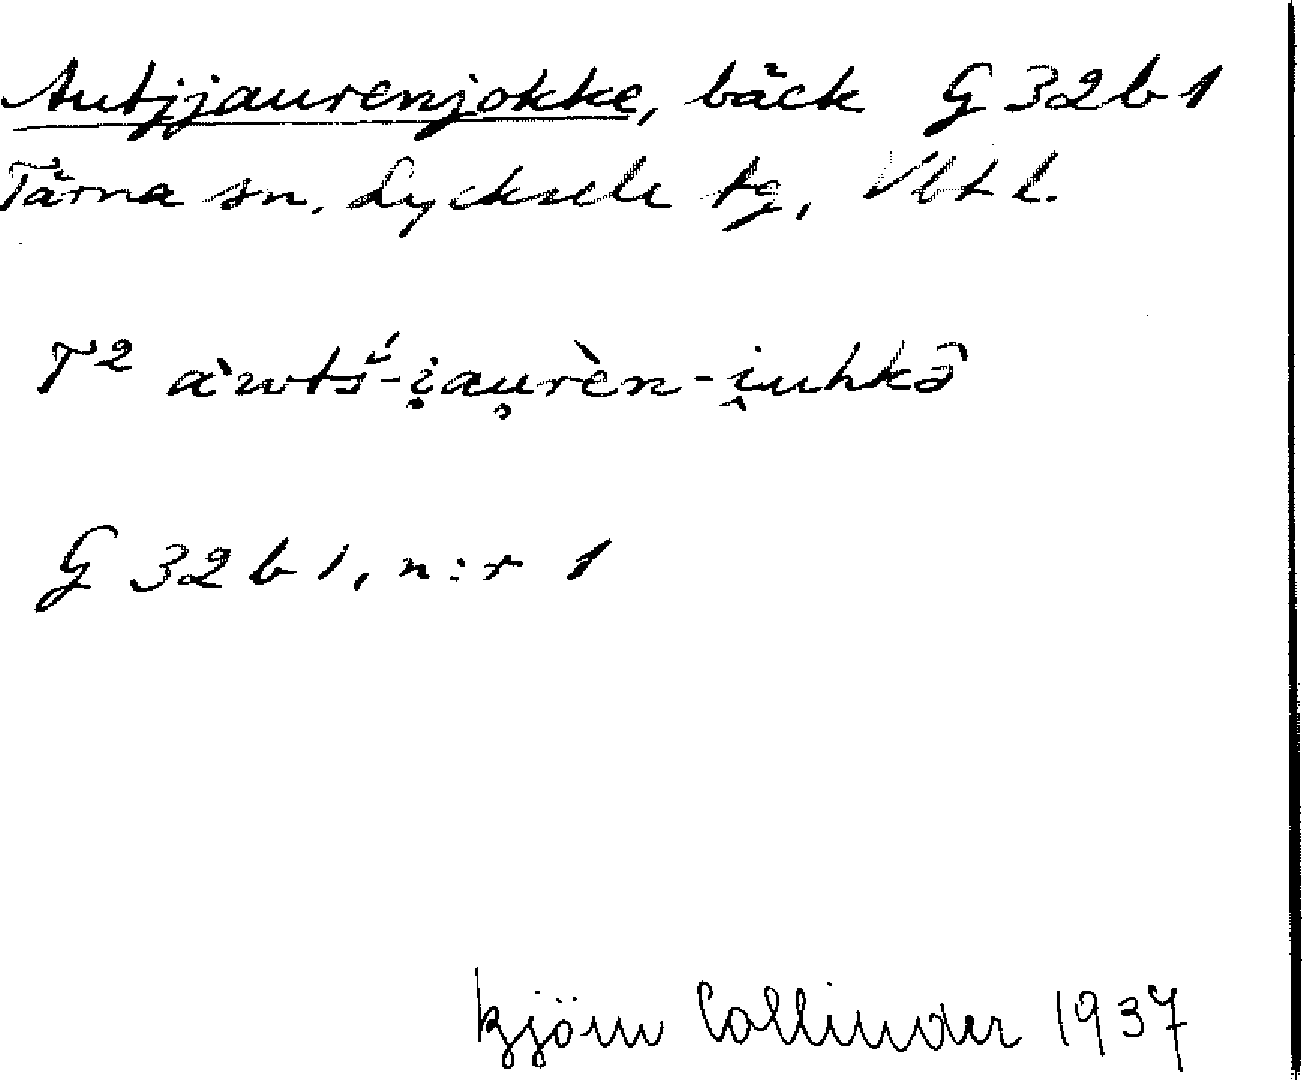 Autjjaurenjokke, bäck G 32 b 1
Tärna sn. Lycksele tg, Vbt l.
T² àwtś́-i̯au̯rèn-i̯uhkə̂
G 32 b 1, n:r 1
Björn Collinder 1937